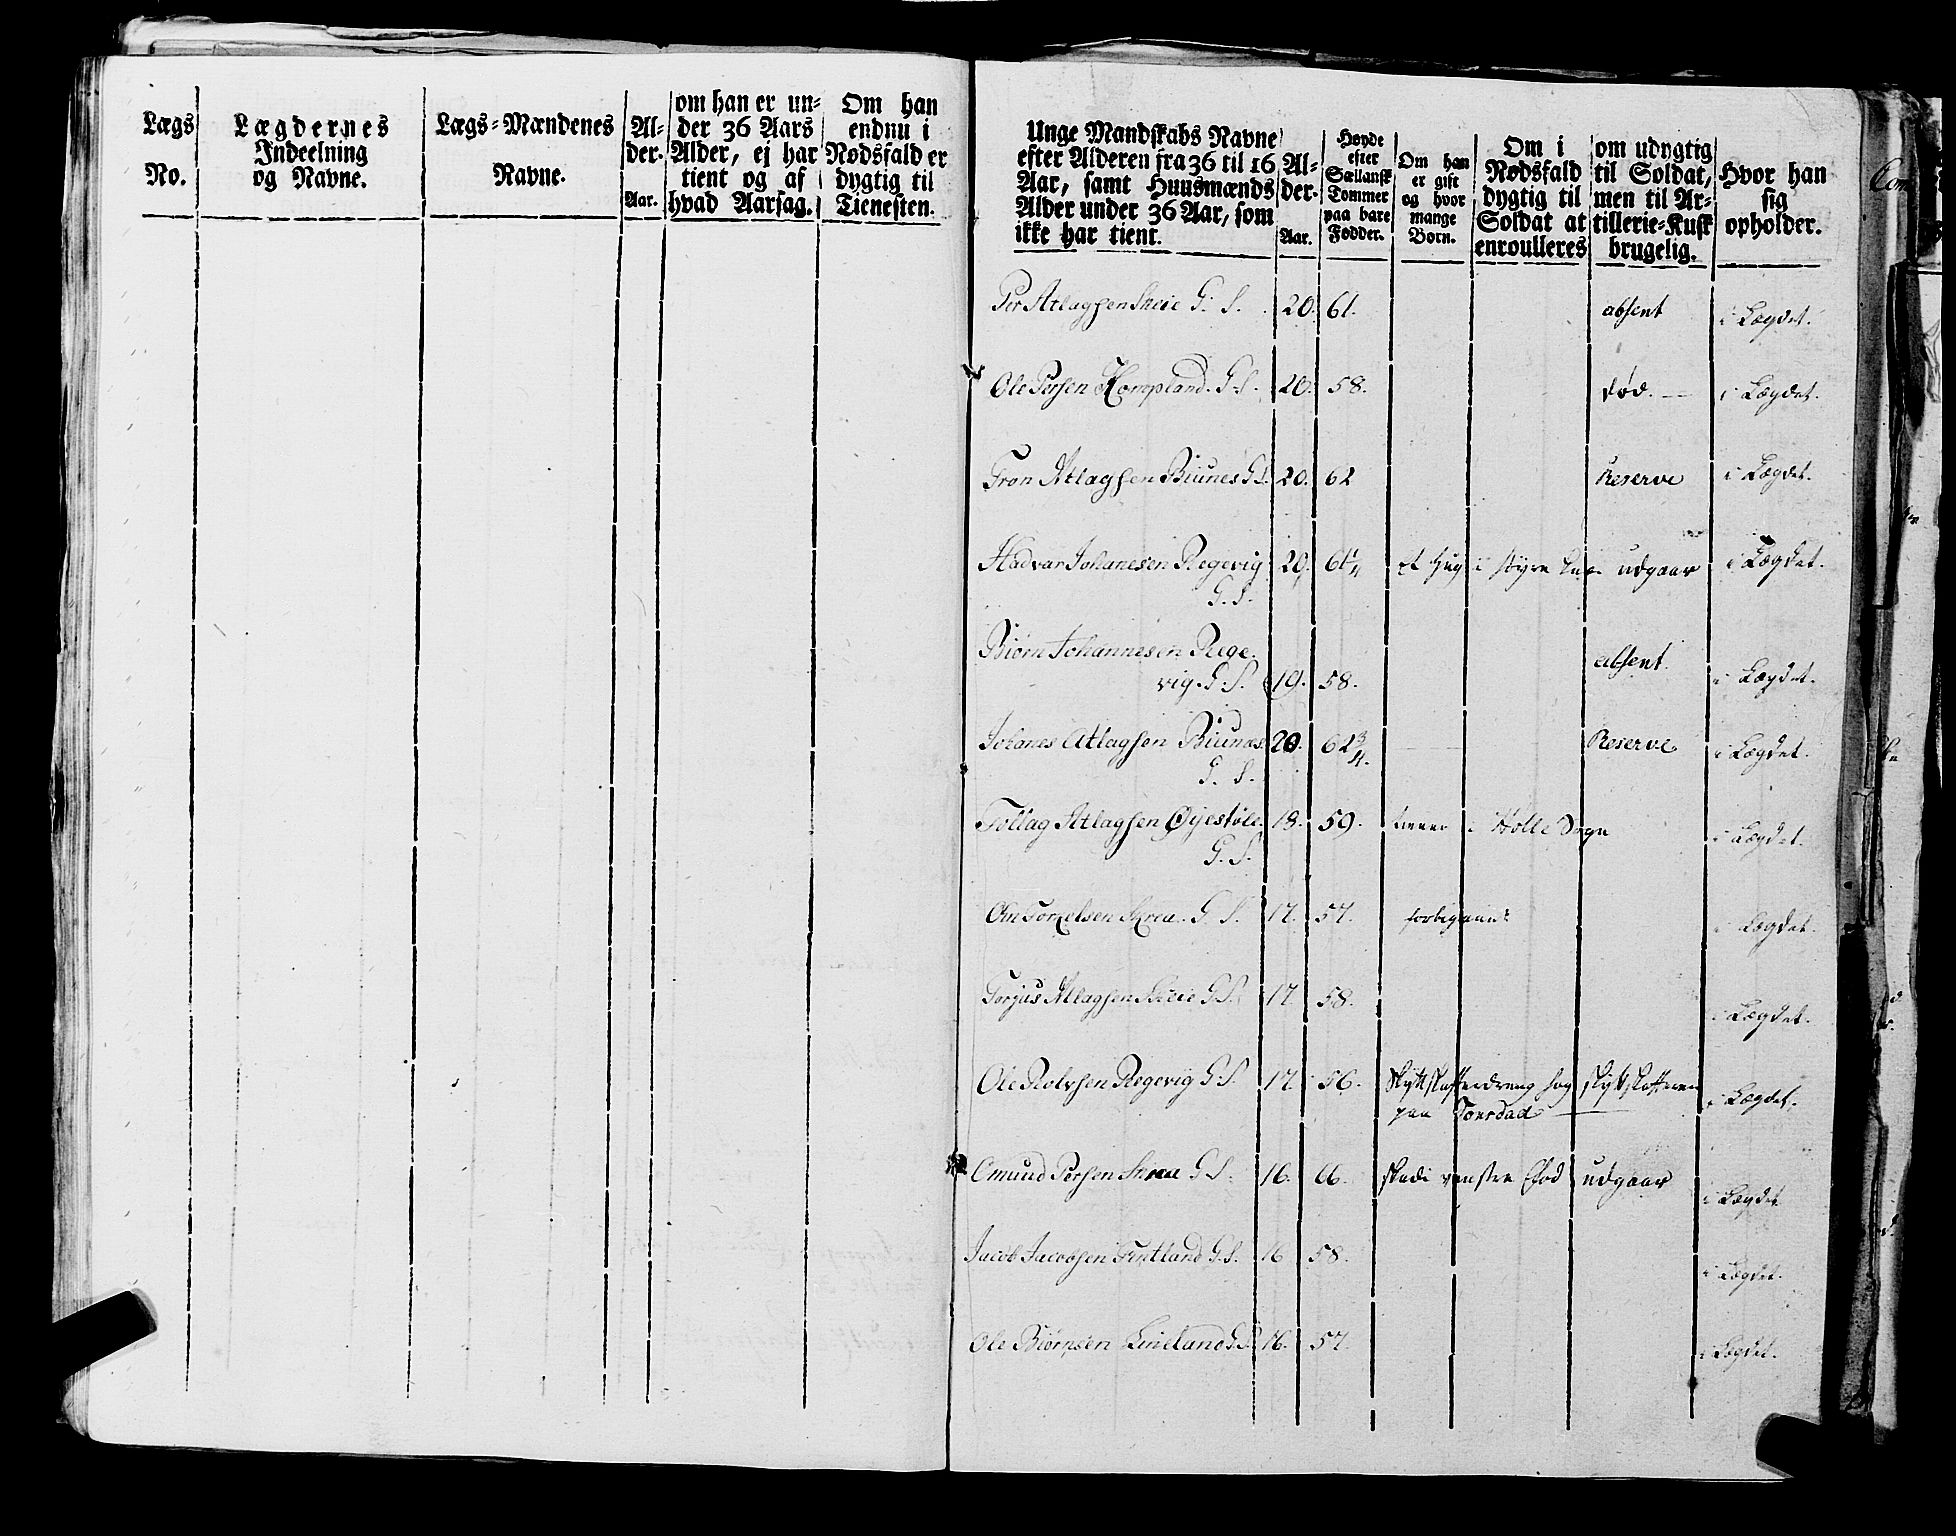 Lægs No.
Lægdernes Indeelning og Navne.
Lægs-Mændenes Navne.
Al-der. Aar.
om han er un-der 36 Aars Alder, ej har tient og af hvad Aarsag.
Om han endnu i Nødsfald er dygtig til Tienesten.
Unge Mandskabs Navne efter Alderen fra 36 til 16 Aar, samt Huusmænds Alder under 36 Aar, som ikke har tient.
Al-der. Aar.
Høyde efter Sællansk Tommer paa bare Fødder.
Om han er gift og hvor mange Børn.
Om i Nødsfald dygtig til Soldat at enroulleres
om udygtig til Soldat, men til Ar-tillerie-Kusk brugelig.
Hvor han sig opholder.
Per Atlagsen Skeie G. S. 20. 61. absent i Lægdet.
Ole Persen Kompland. G. S. 20. 58. død. — i Lægdet.
Tron Atlagsen Biunes G S. 20. 62 Reserve i Lægdet.
Hadvar Johanesen Regevig 20. 61 1/4 et Hug i udgaar i Lægdet.
G. S.
Biørn Johannesen Rege-
vig. G. S. 19. 58. absent. i Lægdet.
Johanes Atlagsen Biunæs 20. 62 3/4. Reserve i Lægdet.
G. S.
Tollag Atlagsen Øyestøle 18. 59. tiener i Holle Sogn i Lægdet.
G. S.
Skrea. G. S. 17. 57. i Lægdet.
Torjus Atlagsen Skeie G S. 17. 58. i Lægdet.
Ole Rolvsen Regevig G. S. 17. 56. i Lægdet.
paa Tonstad
Omund Persen Skrea G S. 16. 66. venstre Fod udgaar i Lægdet
Jacob Jacobsen Tintland G. S. 16 58. i Lægdet.
Ole Biørnsen Lindland G. S. 16. 57. i Lægdet.